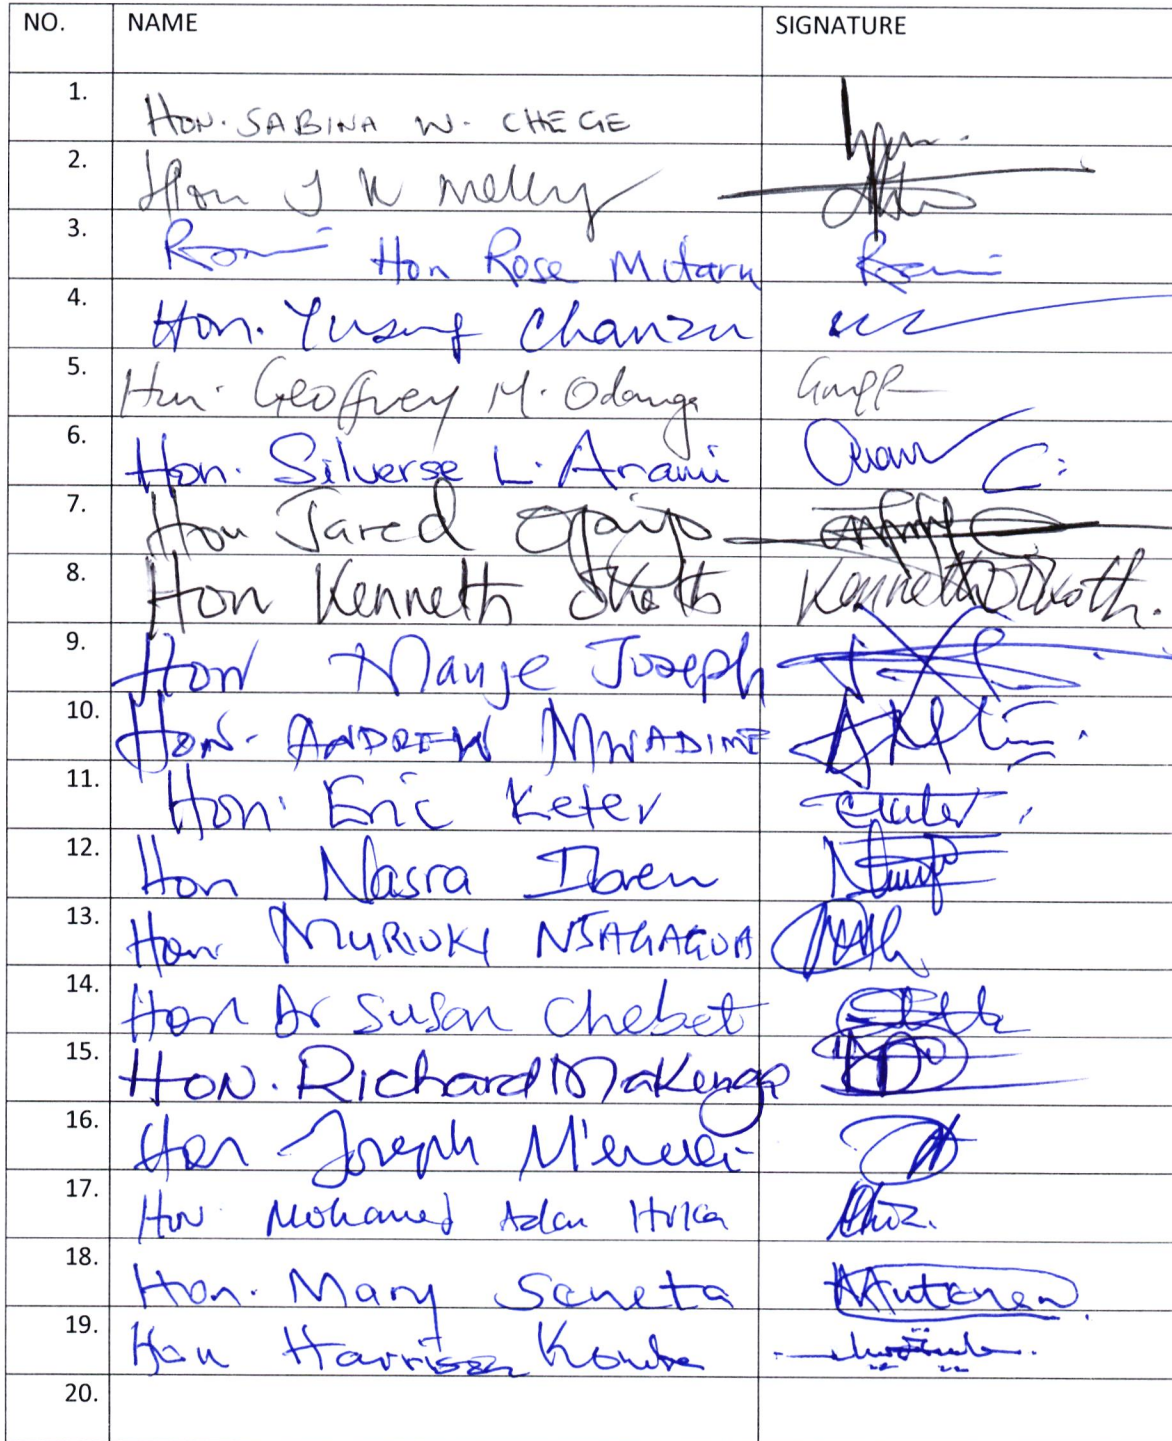 NO. NAME SIGNATURE
1. HON. SABINA W. CHEGE
2. Hon J K Melly
3. Hon Rose Mitaru
4. Hon. Yusuf Chanzu
5. Hon. Geoffrey M. Odanga
6. Hon. Silverse L. Anami
7. Hon Jared Opiyo
8. Hon Kenneth Okoth Kenneth Okoth.
9. Hon Manje Joseph
10. HON. ANDREW MWADIME
11. Hon. Eric Keter
12. Hon Nasra Ibren
13. Hon MURIUKI NJAGAGUA
14. Hon Dr Susan Chebet
15. HON. Richard Makenga
16. Hon Joseph M'eruaki
17. Hon Mohamed Adan Huka
18. Hon. Mary Seneta
19. Hon Harrison Kombe
20.